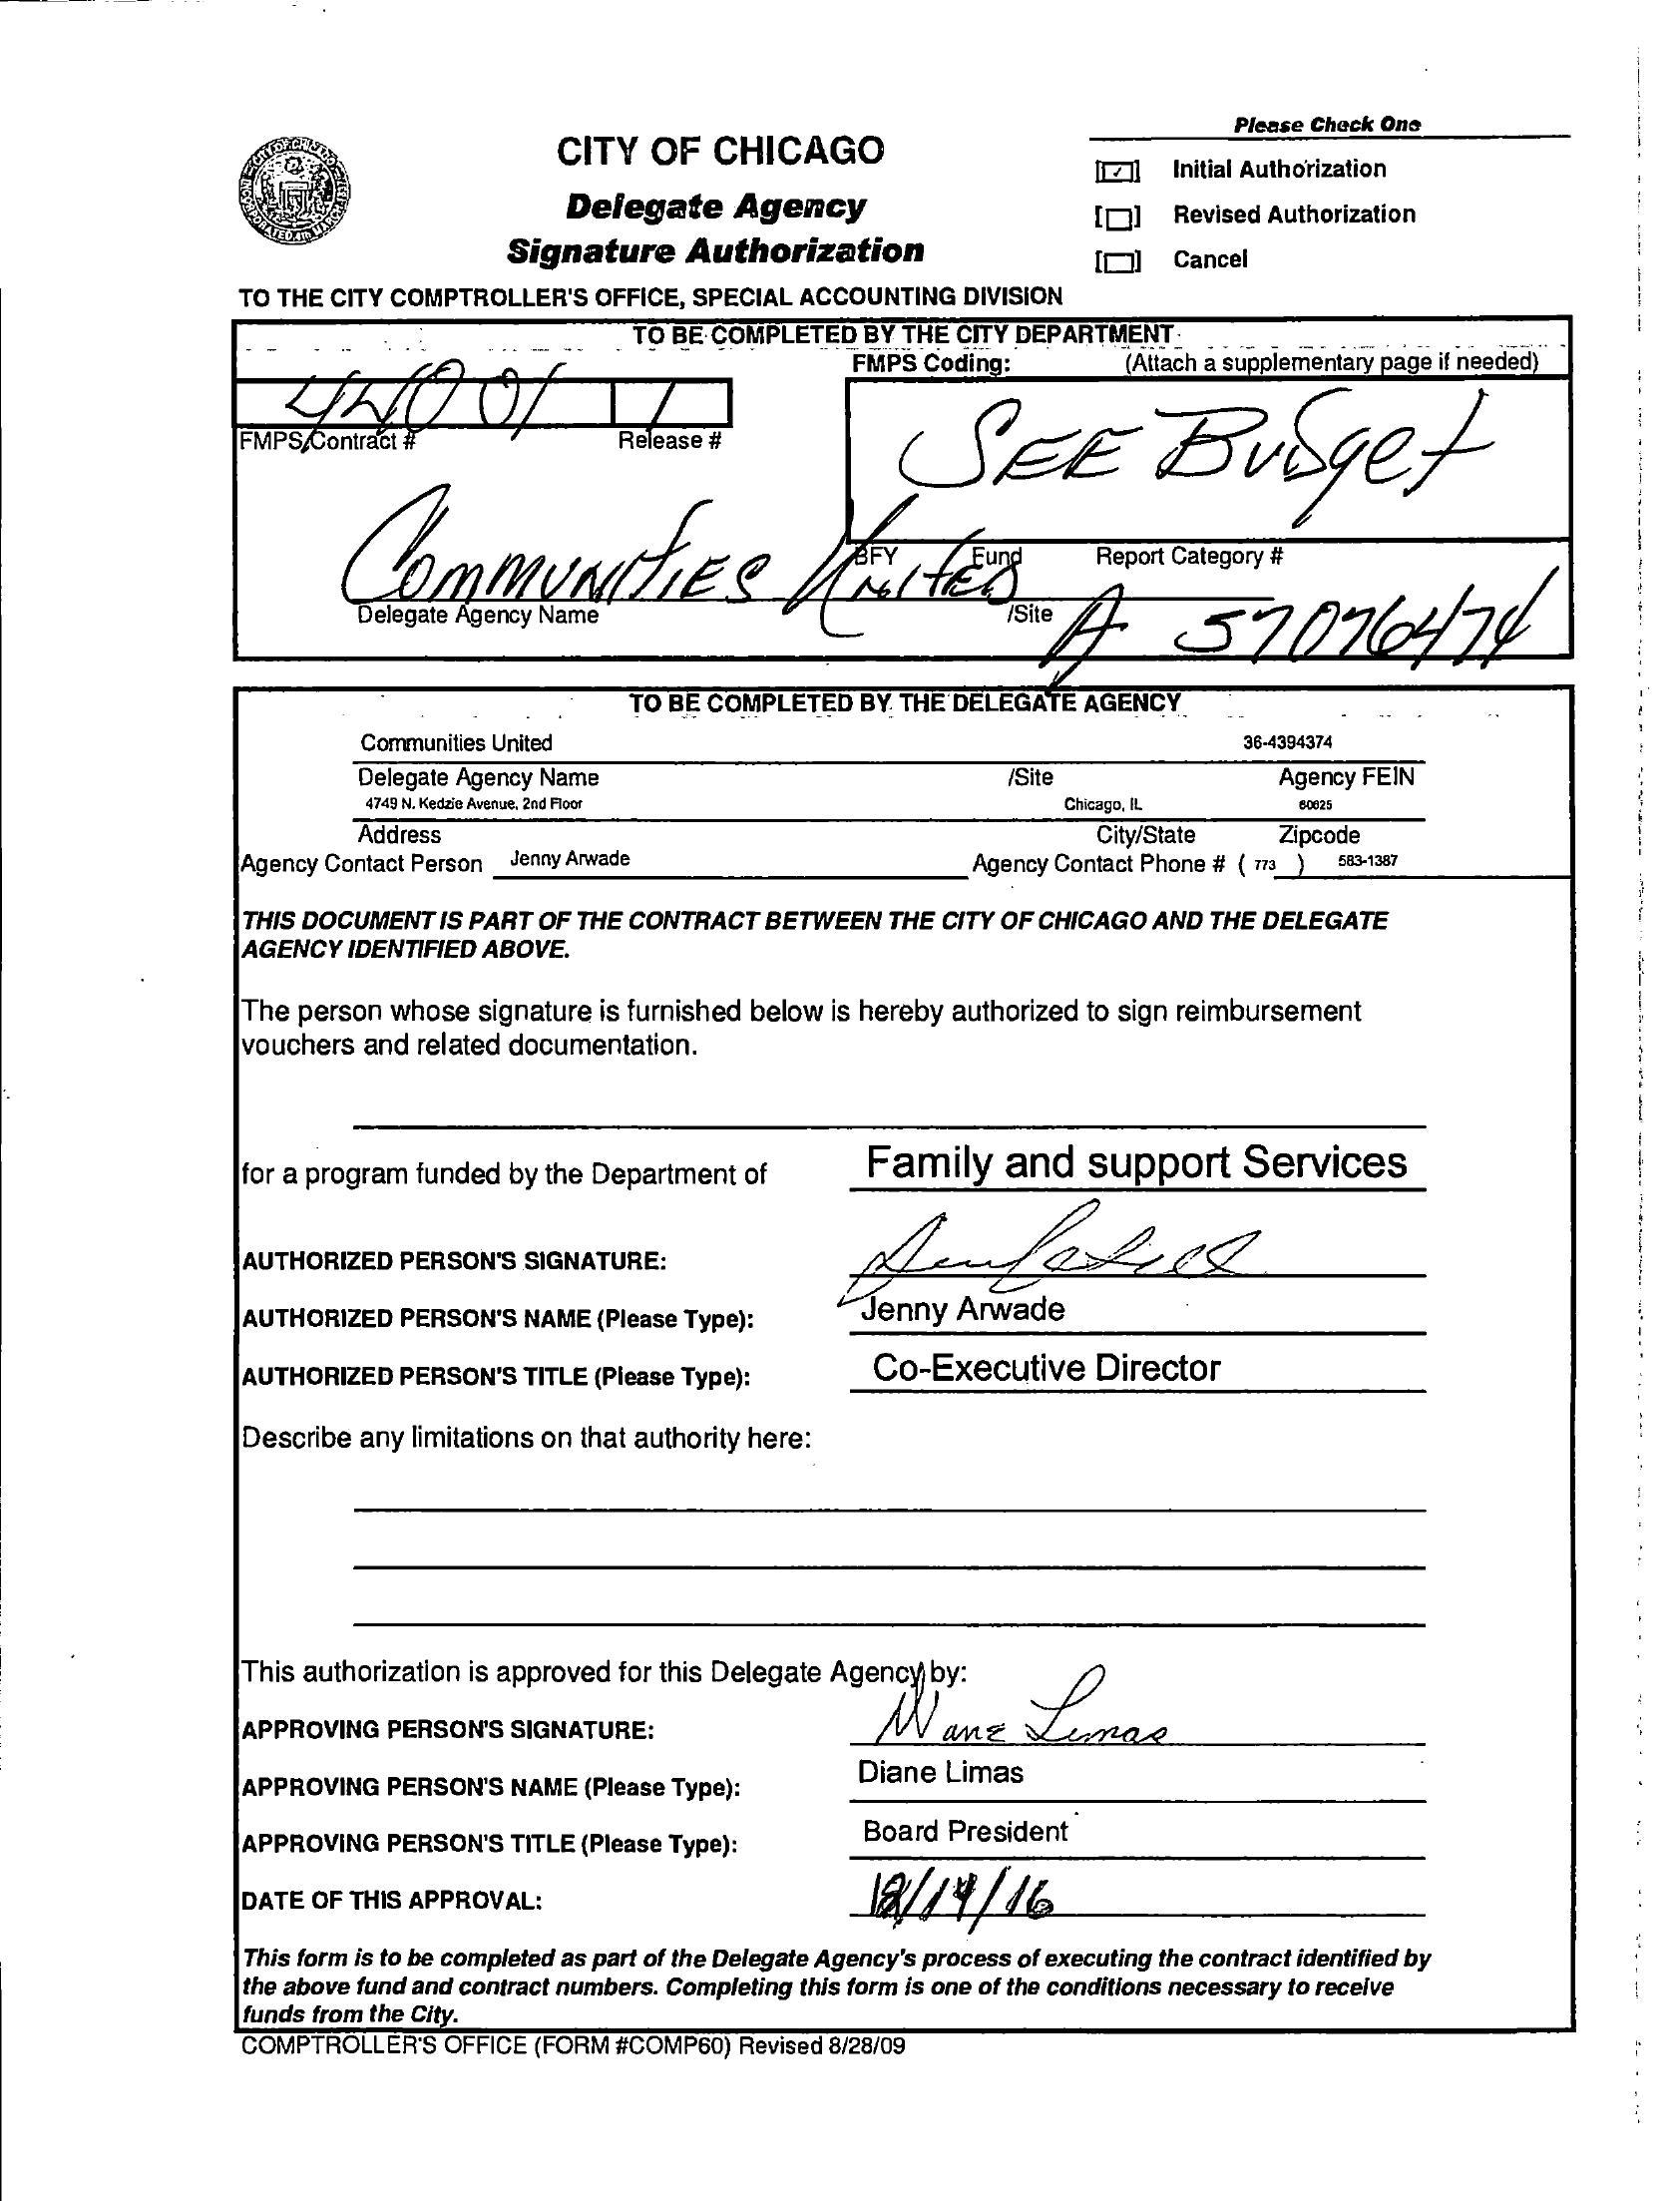 Please Check One
CITY OF CHICAGO
[✓] Initial Authorization
Delegate Agency
[ ] Revised Authorization
Signature Authorization
[ ] Cancel
TO THE CITY COMPTROLLER'S OFFICE, SPECIAL ACCOUNTING DIVISION
TO BE COMPLETED BY THE CITY DEPARTMENT
FMPS Coding: (Attach a supplementary page if needed)
1
FMPS/Contract # Release #
SEE Budget
BFY Fund Report Category #
Communities United
Delegate Agency Name /Site
A 57076474
TO BE COMPLETED BY THE DELEGATE AGENCY
Communities United 36-4394374
Delegate Agency Name /Site Agency FEIN
4749 N. Kedzie Avenue, 2nd Floor Chicago, IL 60625
Address City/State Zipcode
Agency Contact Person Jenny Arwade Agency Contact Phone # ( 773 ) 583-1387
THIS DOCUMENT IS PART OF THE CONTRACT BETWEEN THE CITY OF CHICAGO AND THE DELEGATE
AGENCY IDENTIFIED ABOVE.
The person whose signature is furnished below is hereby authorized to sign reimbursement
vouchers and related documentation.
for a program funded by the Department of Family and support Services
AUTHORIZED PERSON'S SIGNATURE:
AUTHORIZED PERSON'S NAME (Please Type): Jenny Arwade
AUTHORIZED PERSON'S TITLE (Please Type): Co-Executive Director
Describe any limitations on that authority here:
This authorization is approved for this Delegate Agency by:
APPROVING PERSON'S SIGNATURE: Diane Limas
APPROVING PERSON'S NAME (Please Type): Diane Limas
APPROVING PERSON'S TITLE (Please Type): Board President
DATE OF THIS APPROVAL: 12/14/16
This form is to be completed as part of the Delegate Agency's process of executing the contract identified by
the above fund and contract numbers. Completing this form is one of the conditions necessary to receive
funds from the City.
COMPTROLLER'S OFFICE (FORM #COMP60) Revised 8/28/09